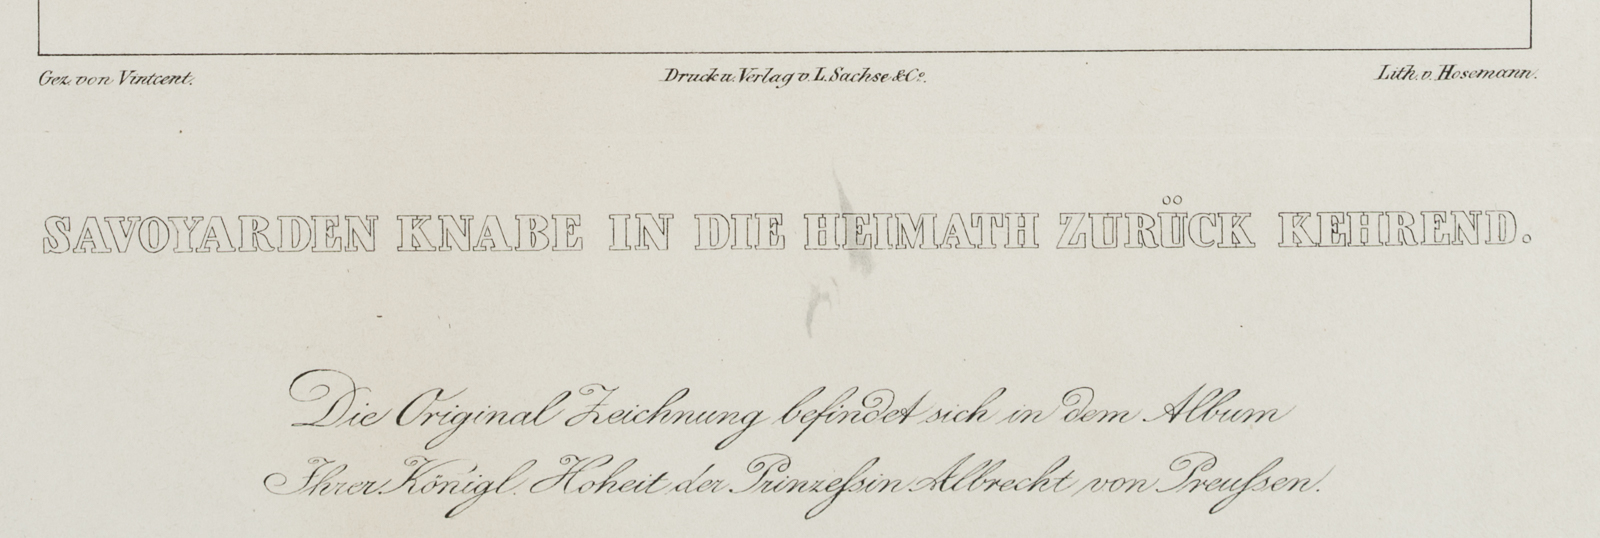 Gez. von Vintcent. Druck u. Verlag v. L. Sachse & Co. Lith. v. Hosemann.
SAVOYARDEN KNABE IN DIE HEIMATH ZURÜCK KEHREND.
Die Original Zeichnung befindet sich in dem Album
Ihrer Königl. Hoheit der Prinzeſsin Albrecht von Preuſsen.